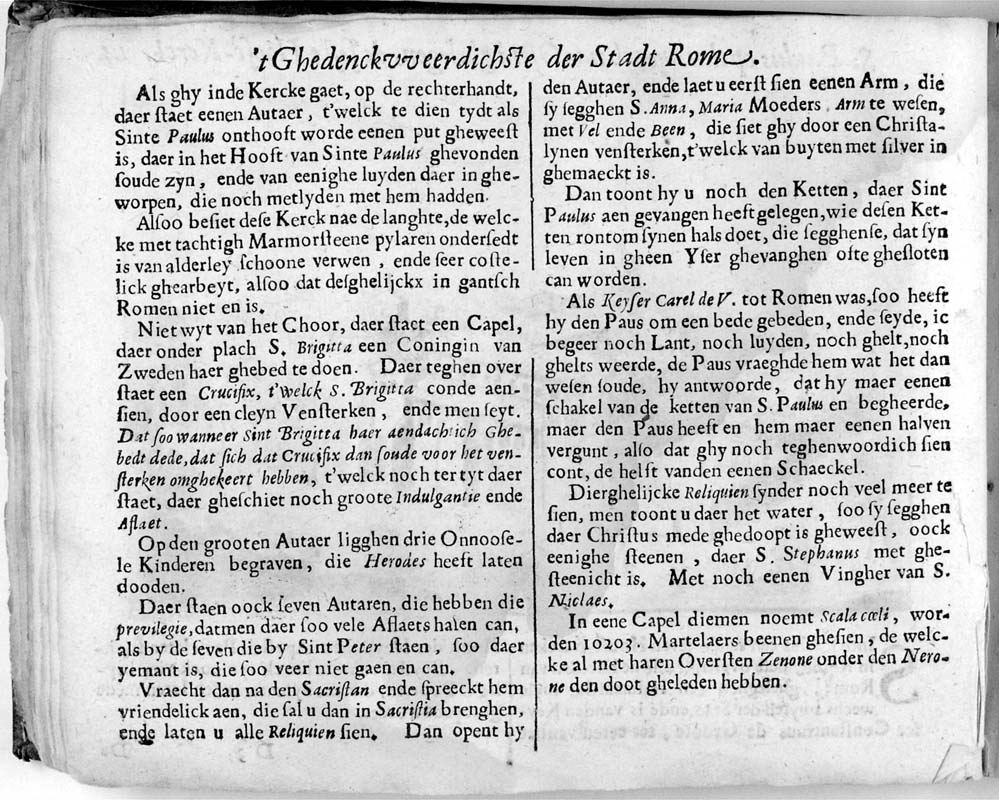 'tGhedenckvveerdichſte der Stadt Rome.
Als ghy inde Kercke gaet, op de rechterhandt,
daer ſtaet eenen Autaer, t'welck te dien tydt als
Sinte Paulus onthooft worde eenen put gheweeſt
is, daer in het Hooft van Sinte Paulus ghevonden
ſoude zyn, ende van eenighe luyden daer in ghe-
worpen, die noch metlyden met hem hadden.
Alſoo beſiet deſe Kerck nae de langhte, de welc-
ke met tachtigh Marmorſteene pylaren onderſedt
is van alderley ſchoone verwen, ende ſeer coſte-
lick ghearbeyt, alſoo dat deſghelijckx in gantſch
Romen niet en is.
Niet wyt van het Choor, daer ſtaet een Capel,
daer onder plach S. Brigitta een Coningin van
Zweden haer ghebed te doen. Daer teghen over
ſtaet een Crucifix, t'welck S. Brigitta conde aen-
ſien, door een cleyn Venſterken, ende men ſeyt.
Dat ſoo wanneer Sint Brigitta haer aendachtich Ghe-
bedt dede, dat ſich dat Crucifix dan ſoude voor het ven-
ſterken omghekeert hebben, t'welck noch ter tyt daer
ſtaet, daer gheſchiet noch groote Indulgantie ende
Aflaet.
Op den grooten Autaer ligghen drie Onnooſe-
le Kinderen begraven, die Herodes heeft laten
dooden.
Daer ſtaen oock ſeven Autaren, die hebben die
previlegie, datmen daer ſoo vele Aflaets halen can,
als by de ſeven die by Sint Peter ſtaen, ſoo daer
yemant is, die ſoo veer niet gaen en can.
Vraecht dan na den Sacriſtan ende ſpreeckt hem
vriendelick aen, die ſal u dan in Sacriſtia brenghen,
ende laten u alle Reliquien ſien. Dan opent hy
den Autaer, ende laet u eerſt ſien eenen Arm, die
ſy ſegghen S. Anna, Maria Moeders Arm te weſen,
met Vel ende Been, die ſiet ghy door een Chriſta-
lynen venſterken, t'welck van buyten met ſilver in
ghemaeckt is.
Dan toont hy u noch den Ketten, daer Sint
Paulus aen gevangen heeft gelegen, wie deſen Ket-
ten rontom ſynen hals doet, die ſegghenſe, dat ſyn
leven in gheen Yſer ghevanghen oſte gheſloten
can worden.
Als Keyſer Carel de V. tot Romen was, ſoo heeft
hy den Paus om een bede gebeden, ende ſeyde, ic
begeer noch Lant, noch luyden, noch ghelt, noch
ghelts weerde, de Paus vraeghde hem wat het dan
weſen ſoude, hy antwoorde, dat hy maer eenen
ſchakel van de ketten van S. Paulus en begheerde,
maer den Paus heeft en hem maer eenen halven
vergunt, alſo dat ghy noch teghenwoordich ſien
cont, de helft vanden eenen Schaeckel.
Dierghelijcke Reliquien ſynder noch veel meer te
ſien, men toont u daer het water, ſoo ſy ſegghen
daer Chriſtus mede ghedoopt is gheweeſt, oock
eenighe ſteenen, daer S. Stephanus met ghe-
ſteenicht is. Met noch eenen Vingher van S.
Niclaes.
In eene Capel diemen noemt Scala cœli, wor-
den 10203. Martelaers beenen gheſien, de welc-
ke al met haren Overſten Zenone onder den Nero-
ne den doot gheleden hebben.